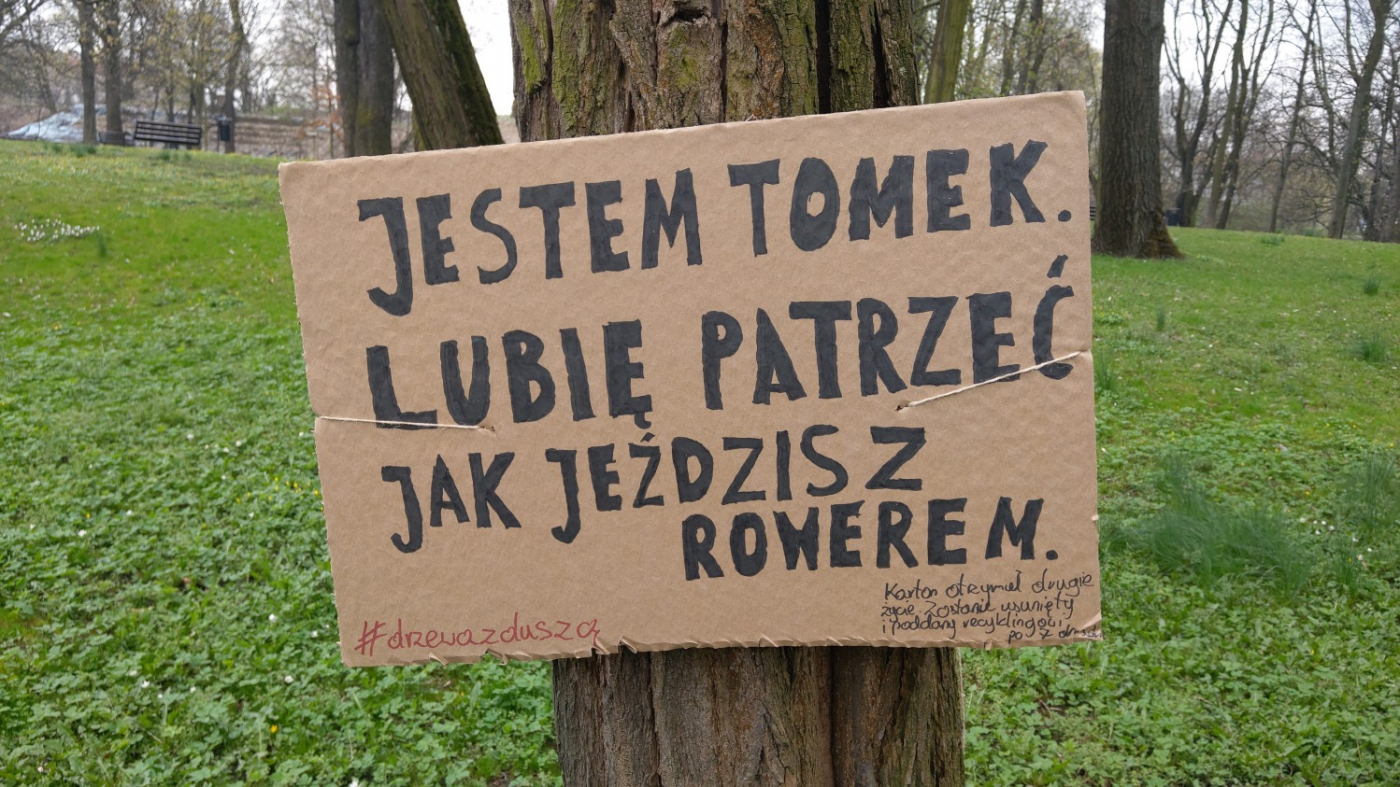 JESTEM TOMEK.
LUBIĘ PATRZEĆ
JAK JEŹDZISZ
ROWEREM.
#drzewazduszą
Karton otrzymał drugie
życie. Zostanie usunięty
i poddany recyklingowi
po 7 dniach